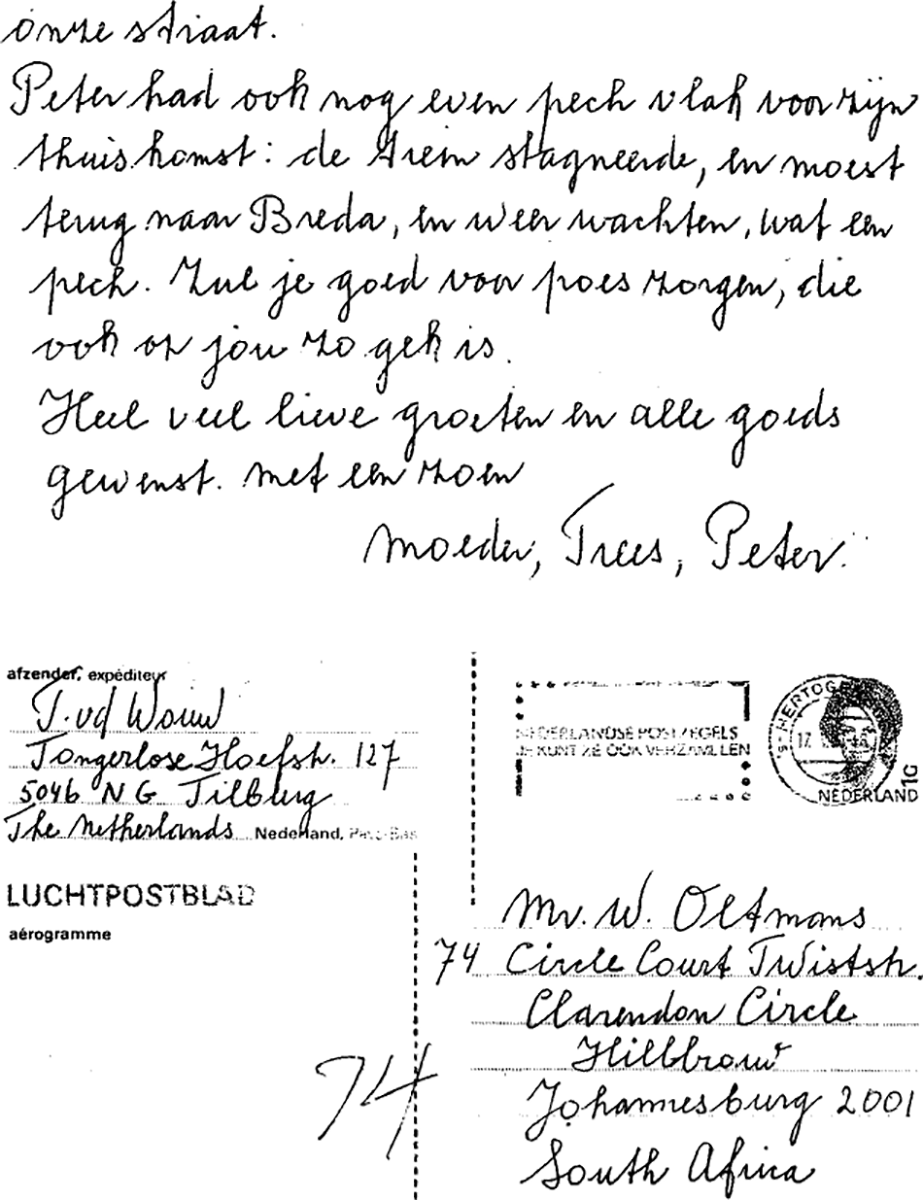 onze straat.
Peter had ook nog even pech vlak voor zijn
thuiskomst: de trein stagneerde, en moest
terug naar Breda, en weer wachten, wat een
pech. Zul je goed voor poes zorgen, die
ook op jou zo gek is.
Heel veel lieve groeten en alle goeds
gewenst. met een zoen
moeder, Trees, Peter.
afzender, expéditeur
T. vd Wouw
Tongerlose Hoefstr. 127
5046 NG Tilburg
The Netherlands Nederland, Pays-Bas
LUCHTPOSTBLAD
aérogramme
NEDERLANDSE POSTZEGELS
JE KUNT ZE OOK VERZAMELEN
's-HERTOGE
17
NEDERLAND
Mr. W. Oltmans
74 Circle Court Twiststr.
Clarendon Circle
Hillbrouw
Johannesburg 2001
South Africa
74